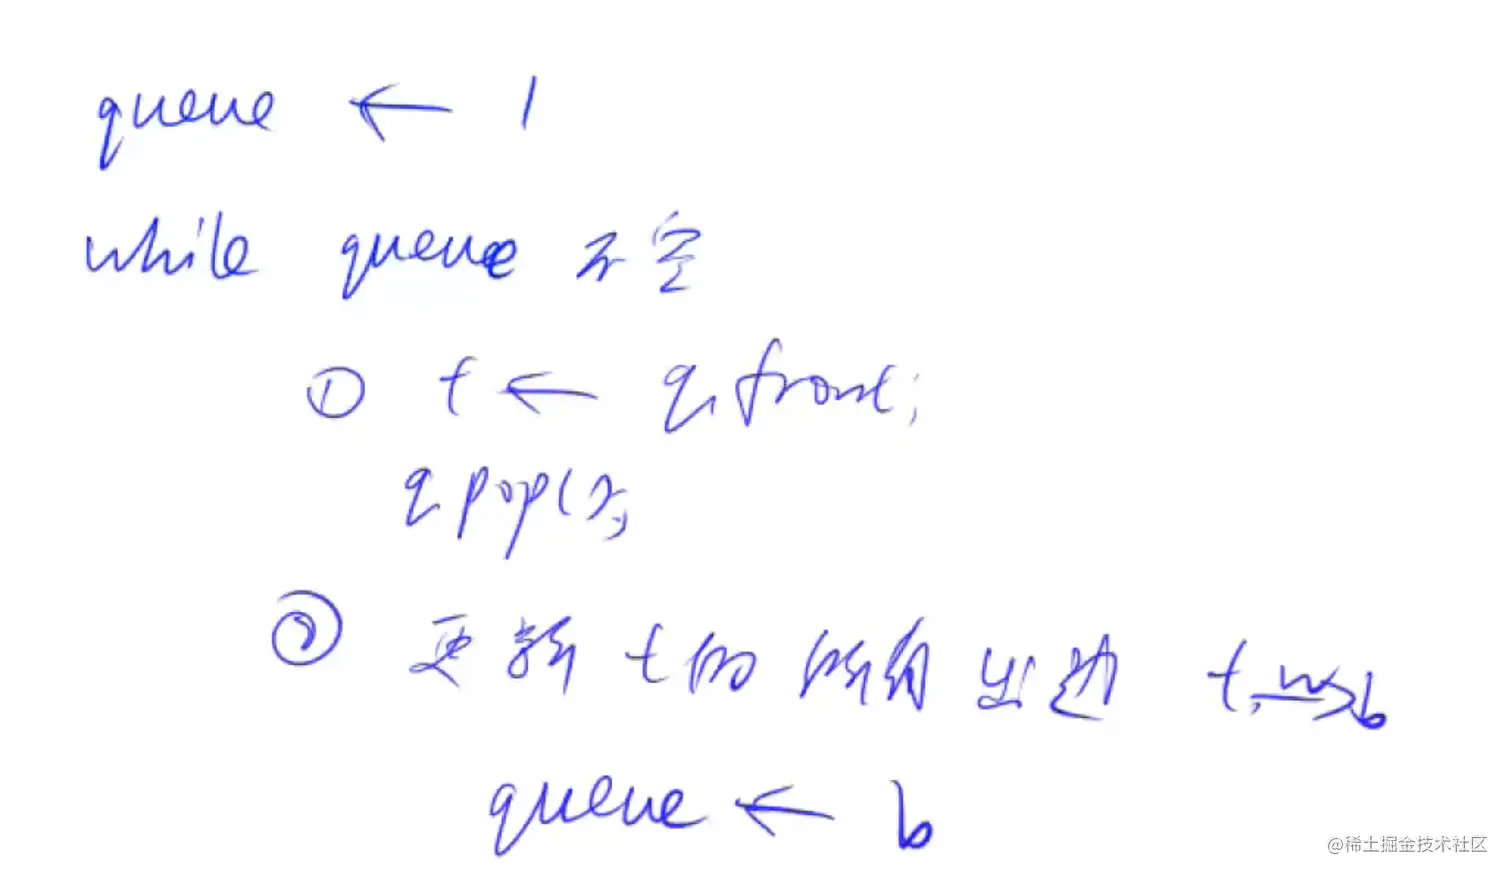 queue ← 1
while queue 不空
① t ← q.front;
q.pop();
② 更新 t的 所有 出边 t, w→ b
queue ← b
@稀土掘金技术社区